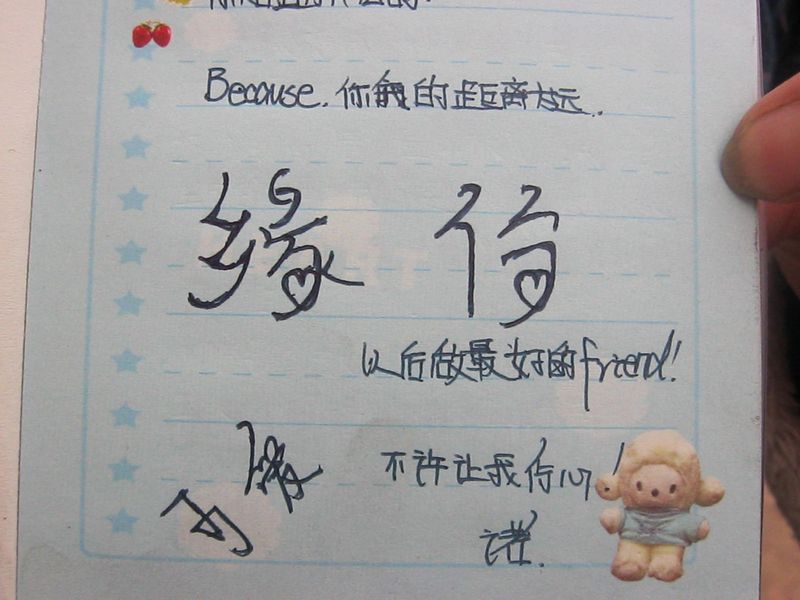 Because.你我的距离太远..
缘份
以后做最好的friend!
不许让我伤心!
诺.